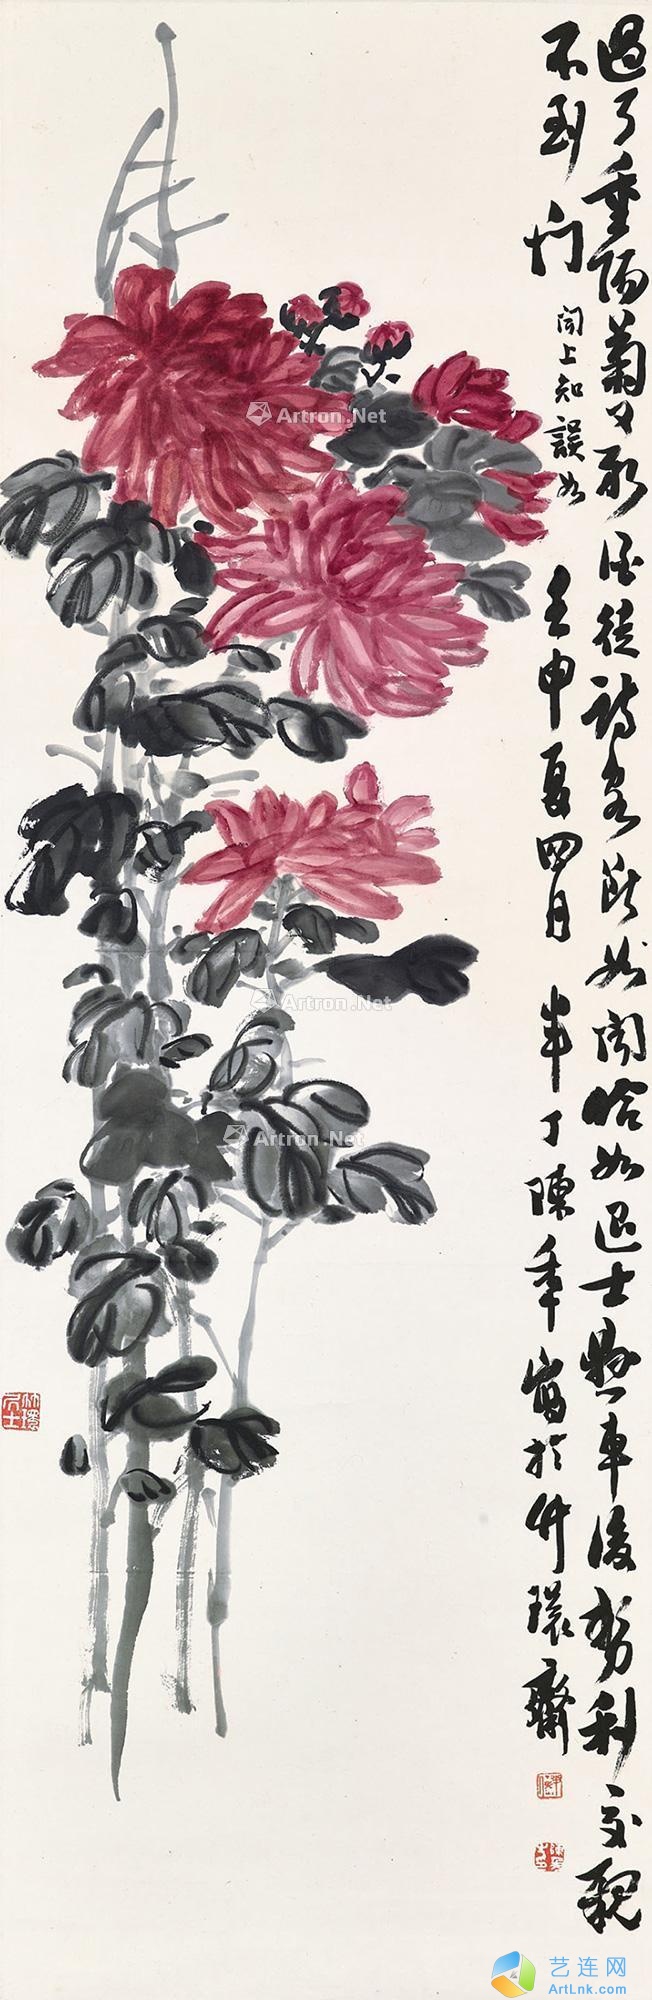 過了重陽菊又新酒徒詩客斷如聞恰如退士懸車後勢利交親
不到門 聞上知誤如 壬申夏四月 半丁陳年寫於竹環齋
Artron.Net
Artron.Net
Artron.Net
艺连网
ArtLnk.com